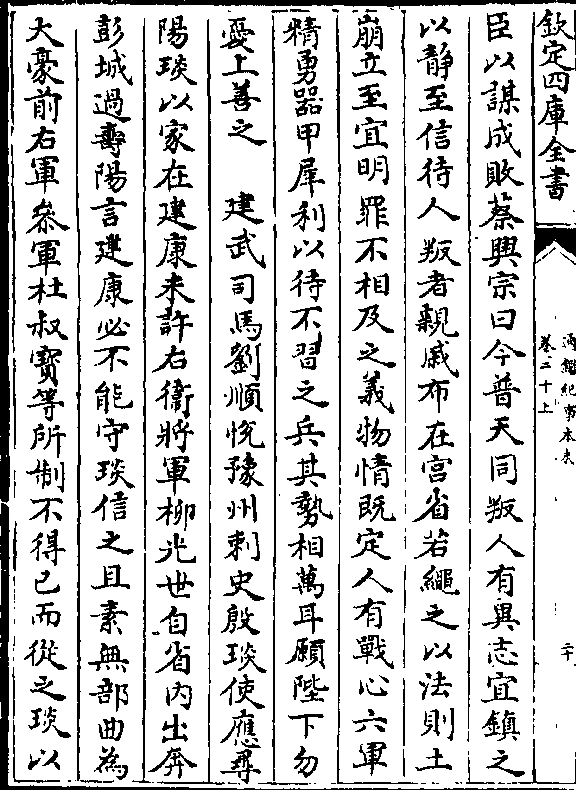 欽定四庫全書
通鑑紀事本末
卷二十上
二十
臣以謀成敗蔡興宗曰今普天同叛人有異志宜鎮之
以靜至信待人叛者親戚布在宮省若繩之以法則土
崩立至宜明罪不相及之義物情既定人有戰心六軍
精勇器甲犀利以待不習之兵其勢相萬耳願陛下勿
憂上善之　建武司馬劉順悅豫州刺史殷琰使應尋
陽琰以家在建康未許右衛將軍柳光世自省內出奔
彭城過壽陽言建康必不能守琰信之且素無部曲為
大豪前右軍參軍杜叔寶等所制不得已而從之琰以